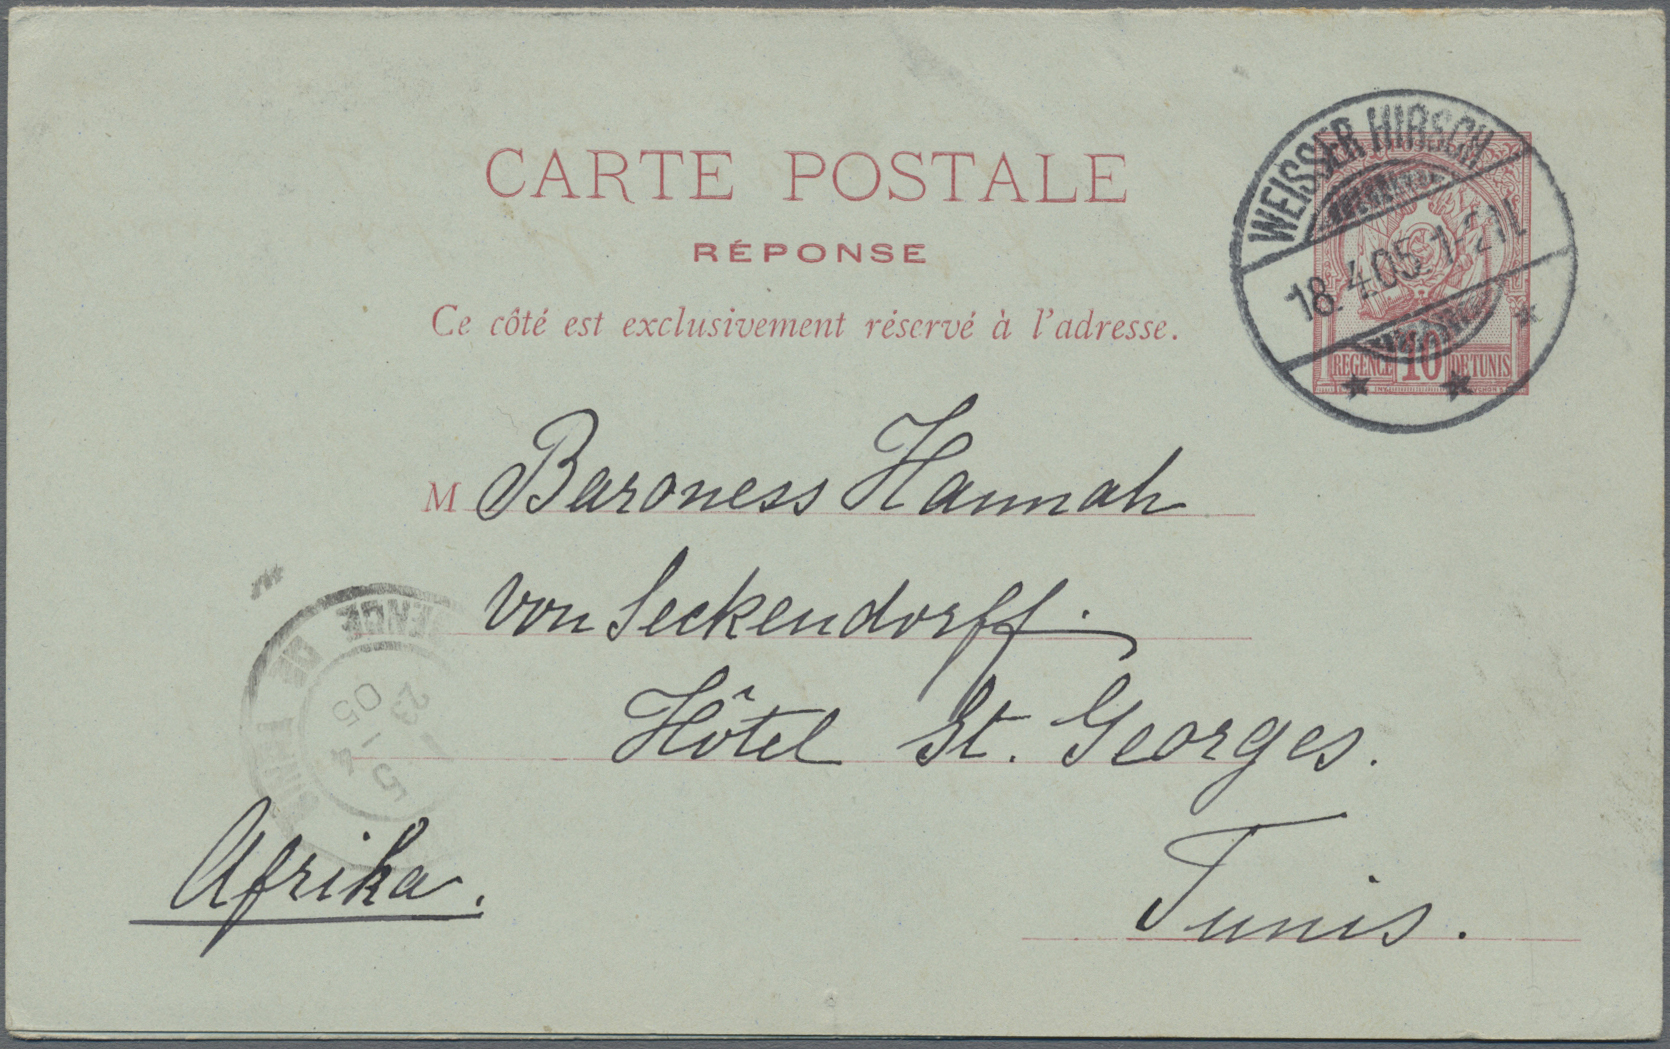 CARTE POSTALE
RÉPONSE
Ce côté est exclusivement réservé à l'adresse.
WEISSER HIRSCH
18.4.05. 1-2N.
REGENCE 10 DE TUNIS
M Baroness Hannah
von Seckendorff.
Hôtel St. Georges.
Tunis.
Afrika.
REGENCE DE TUNIS
23
4
05